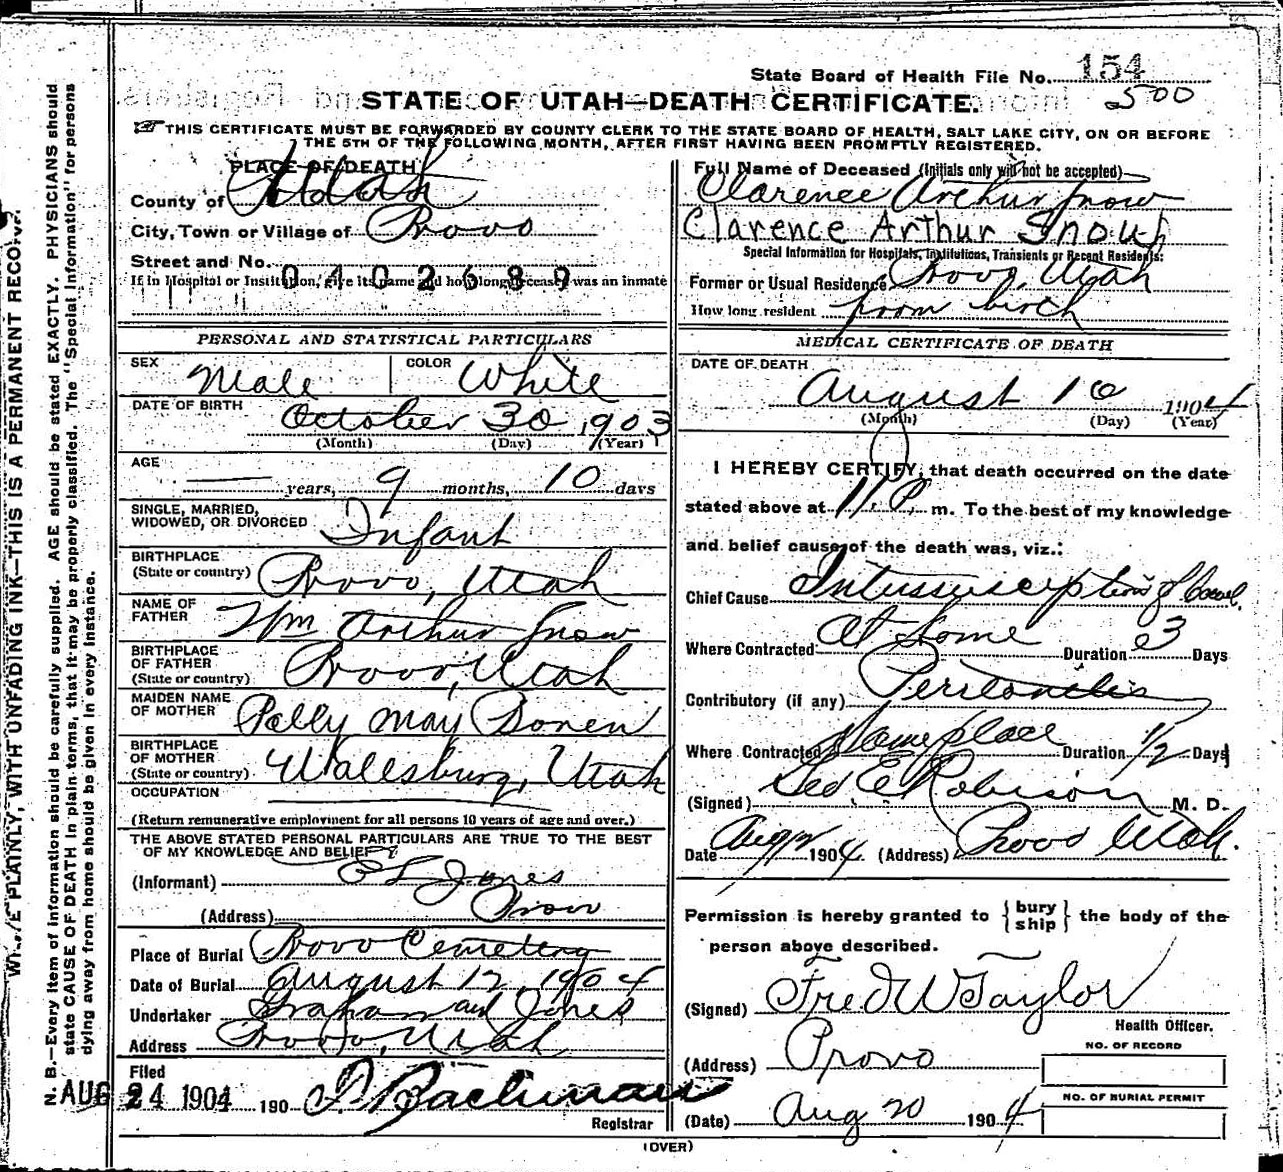 State Board of Health File No. 154
500
STATE OF UTAH—DEATH CERTIFICATE.
THIS CERTIFICATE MUST BE FORWARDED BY COUNTY CLERK TO THE STATE BOARD OF HEALTH, SALT LAKE CITY, ON OR BEFORE
THE 5TH OF THE FOLLOWING MONTH, AFTER FIRST HAVING BEEN PROMPTLY REGISTERED.
PLACE OF DEATH
County of Utah
City, Town or Village of Provo
Street and No.
0402689
If in Hospital or Institution, give its name and how long deceased was an inmate
PERSONAL AND STATISTICAL PARTICULARS
SEX Male COLOR White
DATE OF BIRTH October 30, 1903
(Month) (Day) (Year)
AGE — years, 9 months, 10 days
SINGLE, MARRIED,
WIDOWED, OR DIVORCED Infant
BIRTHPLACE
(State or country) Provo, Utah
NAME OF
FATHER Wm Arthur Snow
BIRTHPLACE
OF FATHER
(State or country) Provo, Utah
MAIDEN NAME
OF MOTHER Polly May Boren
BIRTHPLACE
OF MOTHER
(State or country) Wallsburg, Utah
OCCUPATION
(Return remunerative employment for all persons 10 years of age and over.)
THE ABOVE STATED PERSONAL PARTICULARS ARE TRUE TO THE BEST
OF MY KNOWLEDGE AND BELIEF
(Informant) Jones
(Address) Provo
Place of Burial Provo Cemetery
Date of Burial August 12, 1904
Undertaker Graham and Jones
Address Provo, Utah
Filed
AUG 24 1904 190
Bachman
Registrar
Full Name of Deceased (Initials only will not be accepted)
Clarence Arthur Snow
Clarence Arthur Snow
Special Information for Hospitals, Institutions, Transients or Recent Residents:
Former or Usual Residence Provo, Utah
How long resident from birth
MEDICAL CERTIFICATE OF DEATH
DATE OF DEATH
August 10 1904
(Month) (Day) (Year)
I HEREBY CERTIFY, that death occurred on the date
stated above at 11 P. m. To the best of my knowledge
and belief cause of the death was, viz.:
Chief Cause Intussusception of bowel
Where Contracted At home Duration 3 Days
Contributory (if any) Peritonitis
Where Contracted Same place Duration 1/2 Days
(Signed) Geo E Robison M. D.
Date Aug 1904 (Address) Provo Utah.
Permission is hereby granted to { bury ship } the body of the
person above described.
(Signed) Fred W Taylor
Health Officer.
(Address) Provo
NO. OF RECORD
NO. OF BURIAL PERMIT
(Date) Aug 20 1904
(OVER)
WRITE PLAINLY, WITH UNFADING INK—THIS IS A PERMANENT RECORD.
N. B.—Every item of information should be carefully supplied. AGE should be stated EXACTLY. PHYSICIANS should
state CAUSE OF DEATH in plain terms, that it may be properly classified. The "Special Information" for persons
dying away from home should be given in every instance.